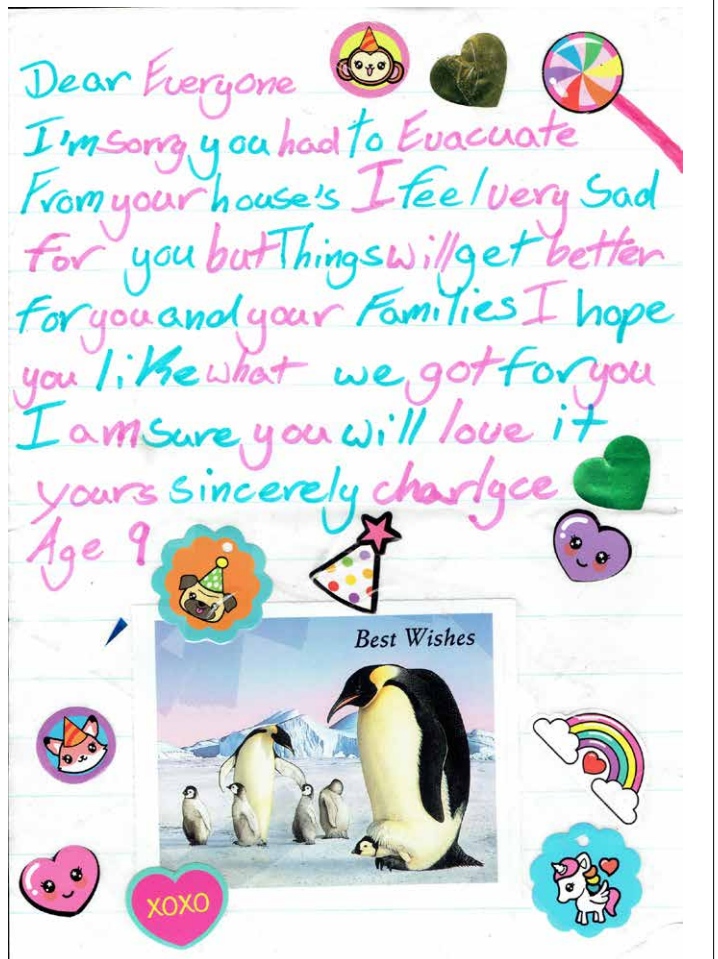 Dear Everyone
I'm sorry you had to Evacuate
From your house's I feel very Sad
for you but Things will get better
for you and your Families I hope
you like what we got for you
I am sure you will love it
yours sincerely charlyce
Age 9
Best Wishes
XOXO